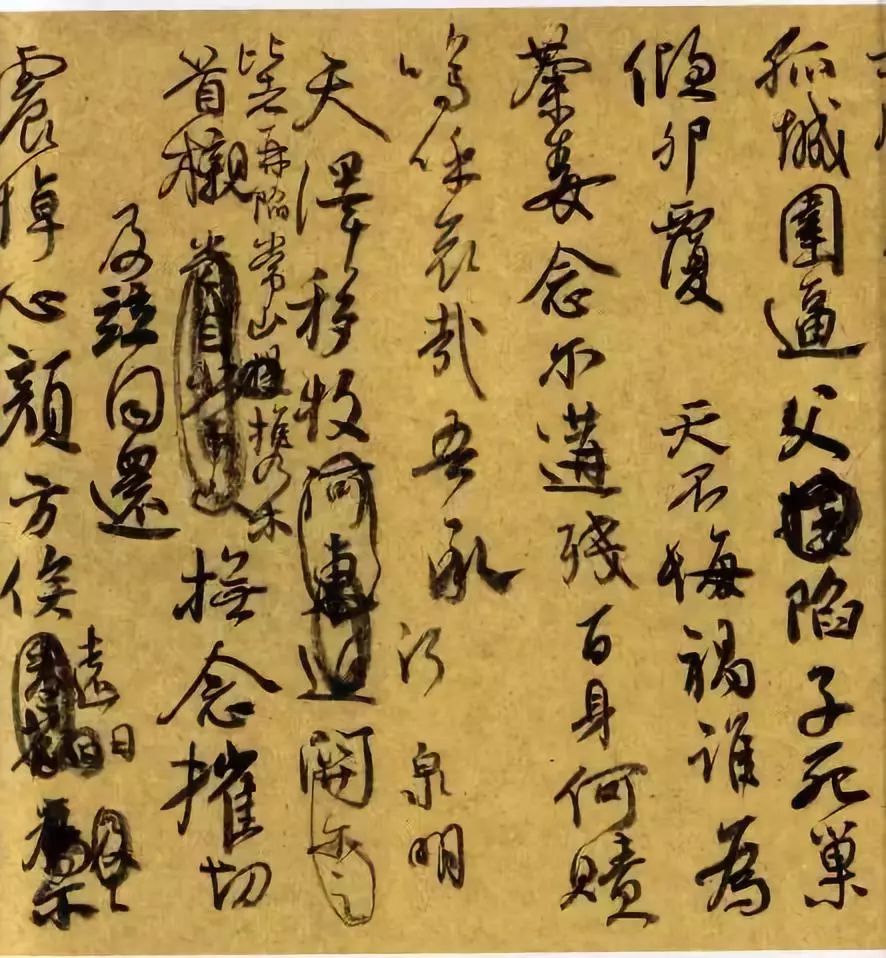 孤城圍逼父陷子死巢
傾卵覆 天不悔禍誰為
荼毒念爾遘殘百身何贖
嗚呼哀哉吾承 泉明
天澤移牧河東近關爾之
比者再陷常山携爾
首櫬 撫念摧切
及茲同還
震悼心顏方俟
遠日